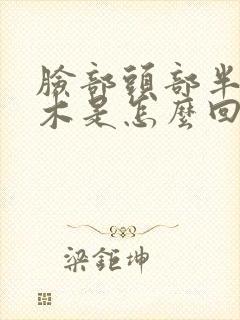 臉部頭部半
木是怎麼回
梁鉅坤